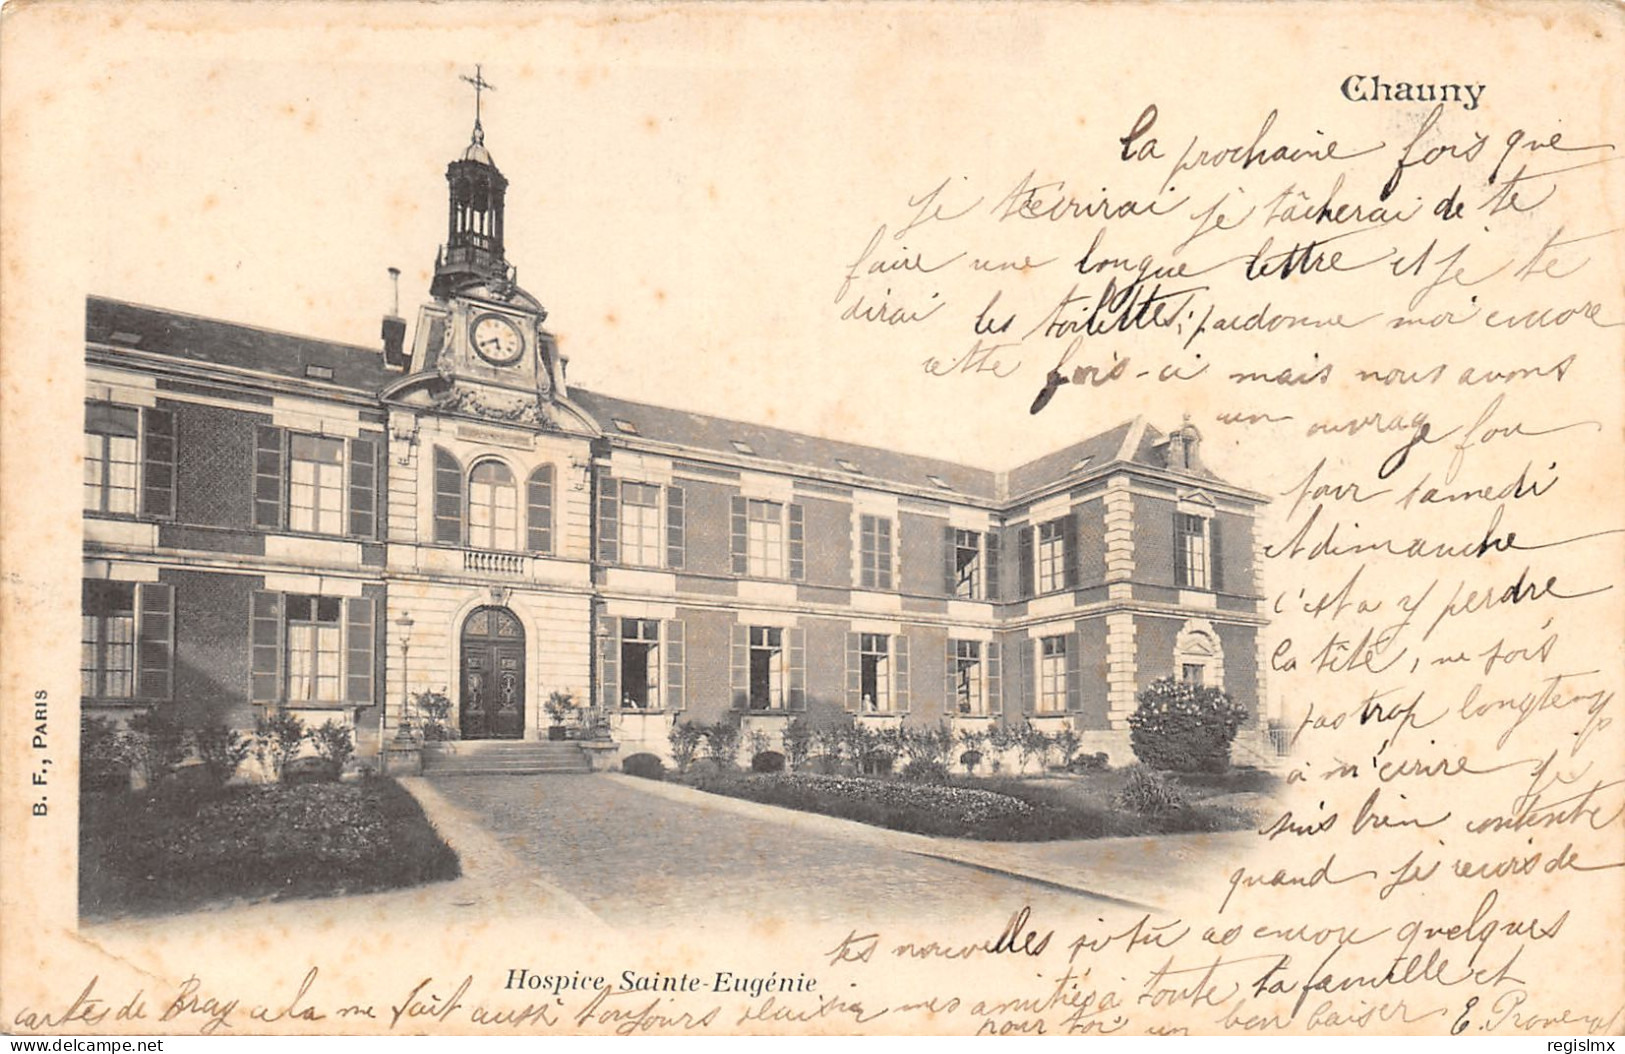 Chauny
La prochaine fois que
je t'écrirai je tâcherai de te
faire une longue lettre et je te
dirai les toilettes; pardonne moi encore
cette fois-ci mais nous avons
un ouvrage fou
pour samedi
et dimanche
c'est a y perdre
la tête, ne sois
pas trop longtemp
à m'écrire je
suis bien contente
quand je reçois de
tes nouvelles si tu as encore quelques
cartes de Bray cela me fait aussi toujours plaisir mes amitiés à toute ta famille et
pour toi un bon baiser E.
Hospice Sainte-Eugénie
B. F., PARIS
delcampe.net
regislmx